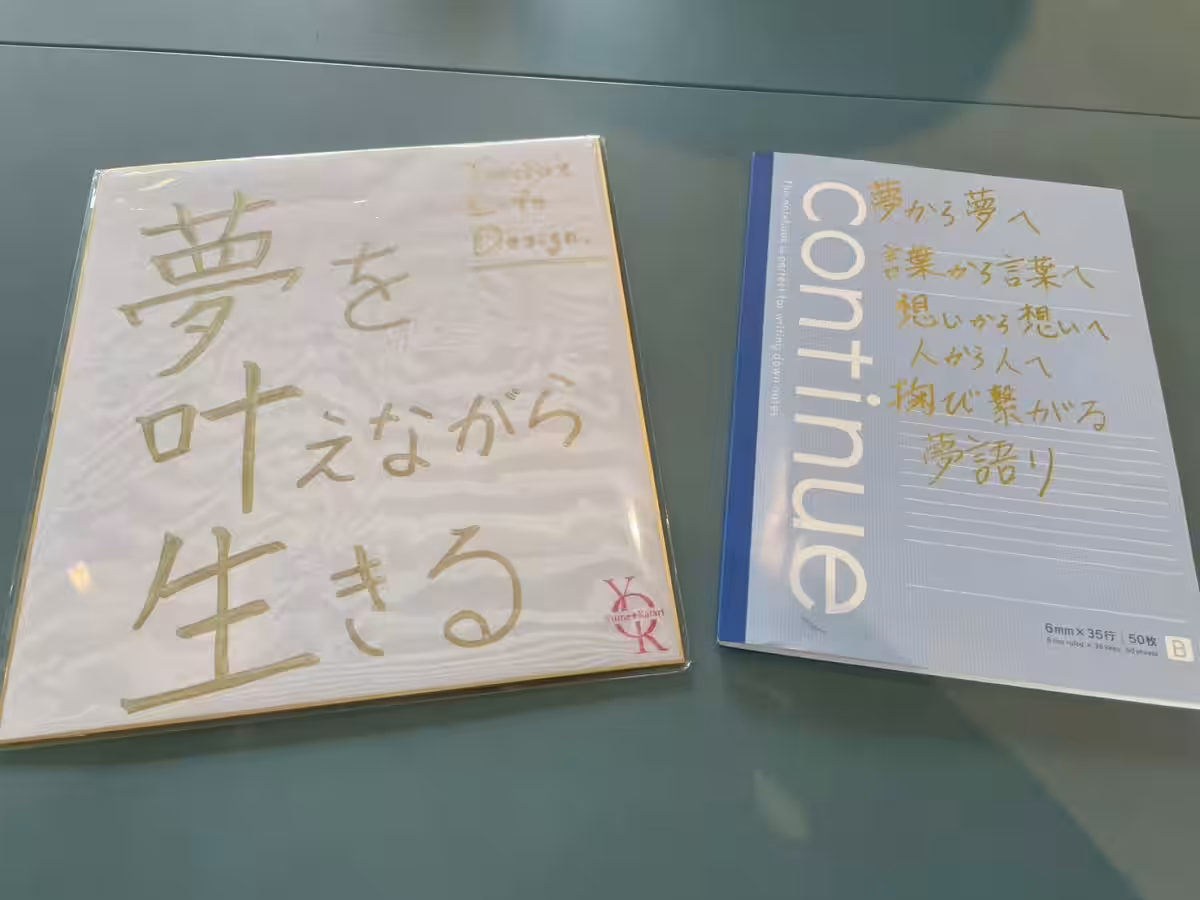 Design.
夢を
叶えながら
生きる
Yume★Katari
YOK
continue
This notebook is perfect for writing down notes
夢から夢へ
言葉から言葉へ
想いから想いへ
人から人へ
掬び繋がる
夢語り
6mm×35行 50枚
B